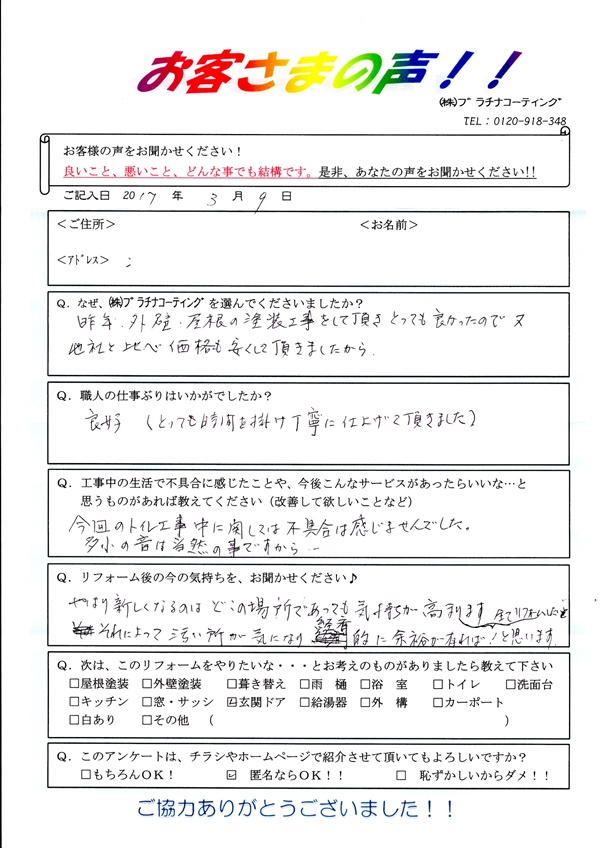 お客さまの声！！
㈱プラチナコーティング
TEL：0120-918-348
お客様の声をお聞かせください！
良いこと、悪いこと、どんな事でも結構です。是非、あなたの声をお聞かせください!!
ご記入日 2017 年 3 月 9 日
＜ご住所＞ ＜お名前＞
＜アドレス＞ :
Q. なぜ、㈱プラチナコーティングを選んでくださいましたか？
昨年、外壁・屋根の塗装工事をして頂きとっても良かったので又
他社と比べ価格も安くして頂きましたから.
Q. 職人の仕事ぶりはいかがでしたか？
良好 (とっても時間を掛け丁寧に仕上げて頂きました)
Q. 工事中の生活で不具合に感じたことや、今後こんなサービスがあったらいいな…と
思うものがあれば教えてください（改善して欲しいことなど）
今回のトイレ工事中に関しては不具合は感じませんでした。
多少の音は当然の事ですから…
Q. リフォーム後の今の気持ちを、お聞かせください♪
やはり新しくなるのはどこの場所であっても気持ちが高まります 全てリフォームしたい
それによって汚い所が気になり 経済的に余裕が有れば！と思います
Q. 次は、このリフォームをやりたいな・・・とお考えのものがありましたら教えて下さい
□屋根塗装 □外壁塗装 □葺き替え □雨 樋 □浴 室 □トイレ □洗面台
□キッチン □窓・サッシ ☑玄関ドア □給湯器 □外 構 □カーポート
□白あり □その他 （ ）
Q. このアンケートは、チラシやホームページで紹介させて頂いてもよろしいですか？
□もちろんOK！ ☑ 匿名ならOK！！ □ 恥ずかしいからダメ！！
ご協力ありがとうございました！！